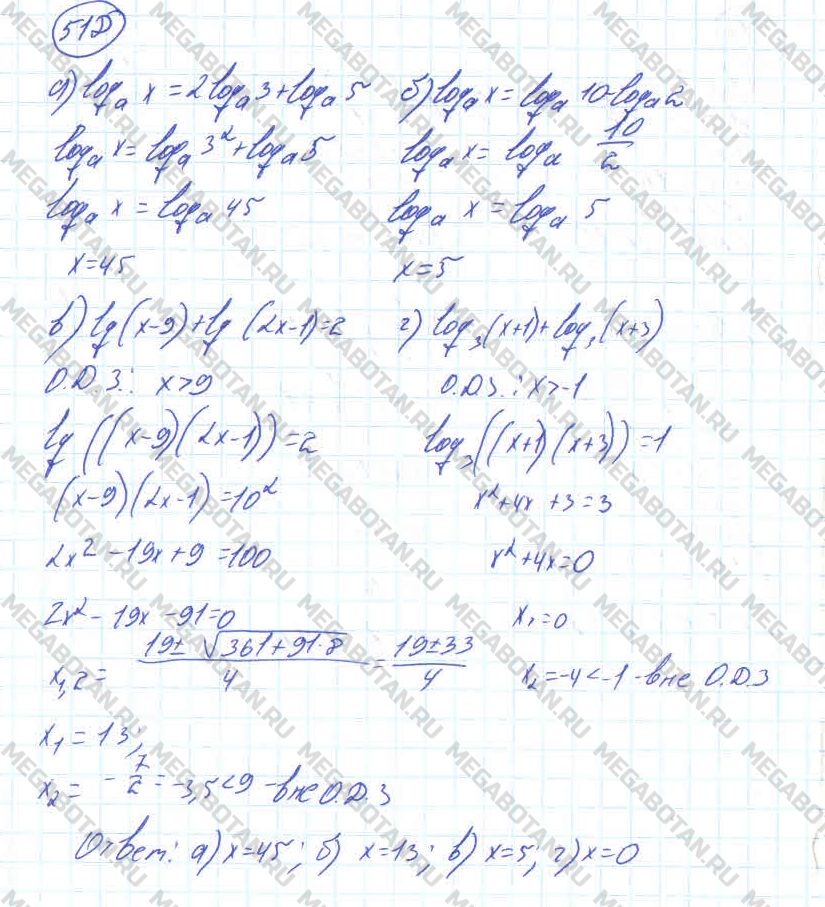 51D
а) logₐ x = 2logₐ3 + logₐ5
logₐ x = logₐ 3² + logₐ5
logₐ x = logₐ 45
x=45
б) logₐ x = logₐ 10 - logₐ2
logₐ x = logₐ 10/2
logₐ x = logₐ 5
x=5
в) lg(x-9)+lg(2x-1)=2
О.Д.З: x>9
lg((x-9)(2x-1))=2
(x-9)(2x-1)=10²
2x²-19x+9=100
2x²-19x-91=0
x₁,₂= (19±√(361+91·8))/4 = (19±33)/4
x₁=13;
x₂= -7/2 = -3,5<9 - вне О.Д.З
г) log₃(x+1)+log₃(x+3)
О.Д.З.: x>-1
log₃((x+1)(x+3))=1
x²+4x+3=3
x²+4x=0
x₁=0
x₂=-4<-1 - вне О.Д.З
Ответ: а) x=45; б) x=13; в) x=5; г) x=0
MEGABOTAN.RU